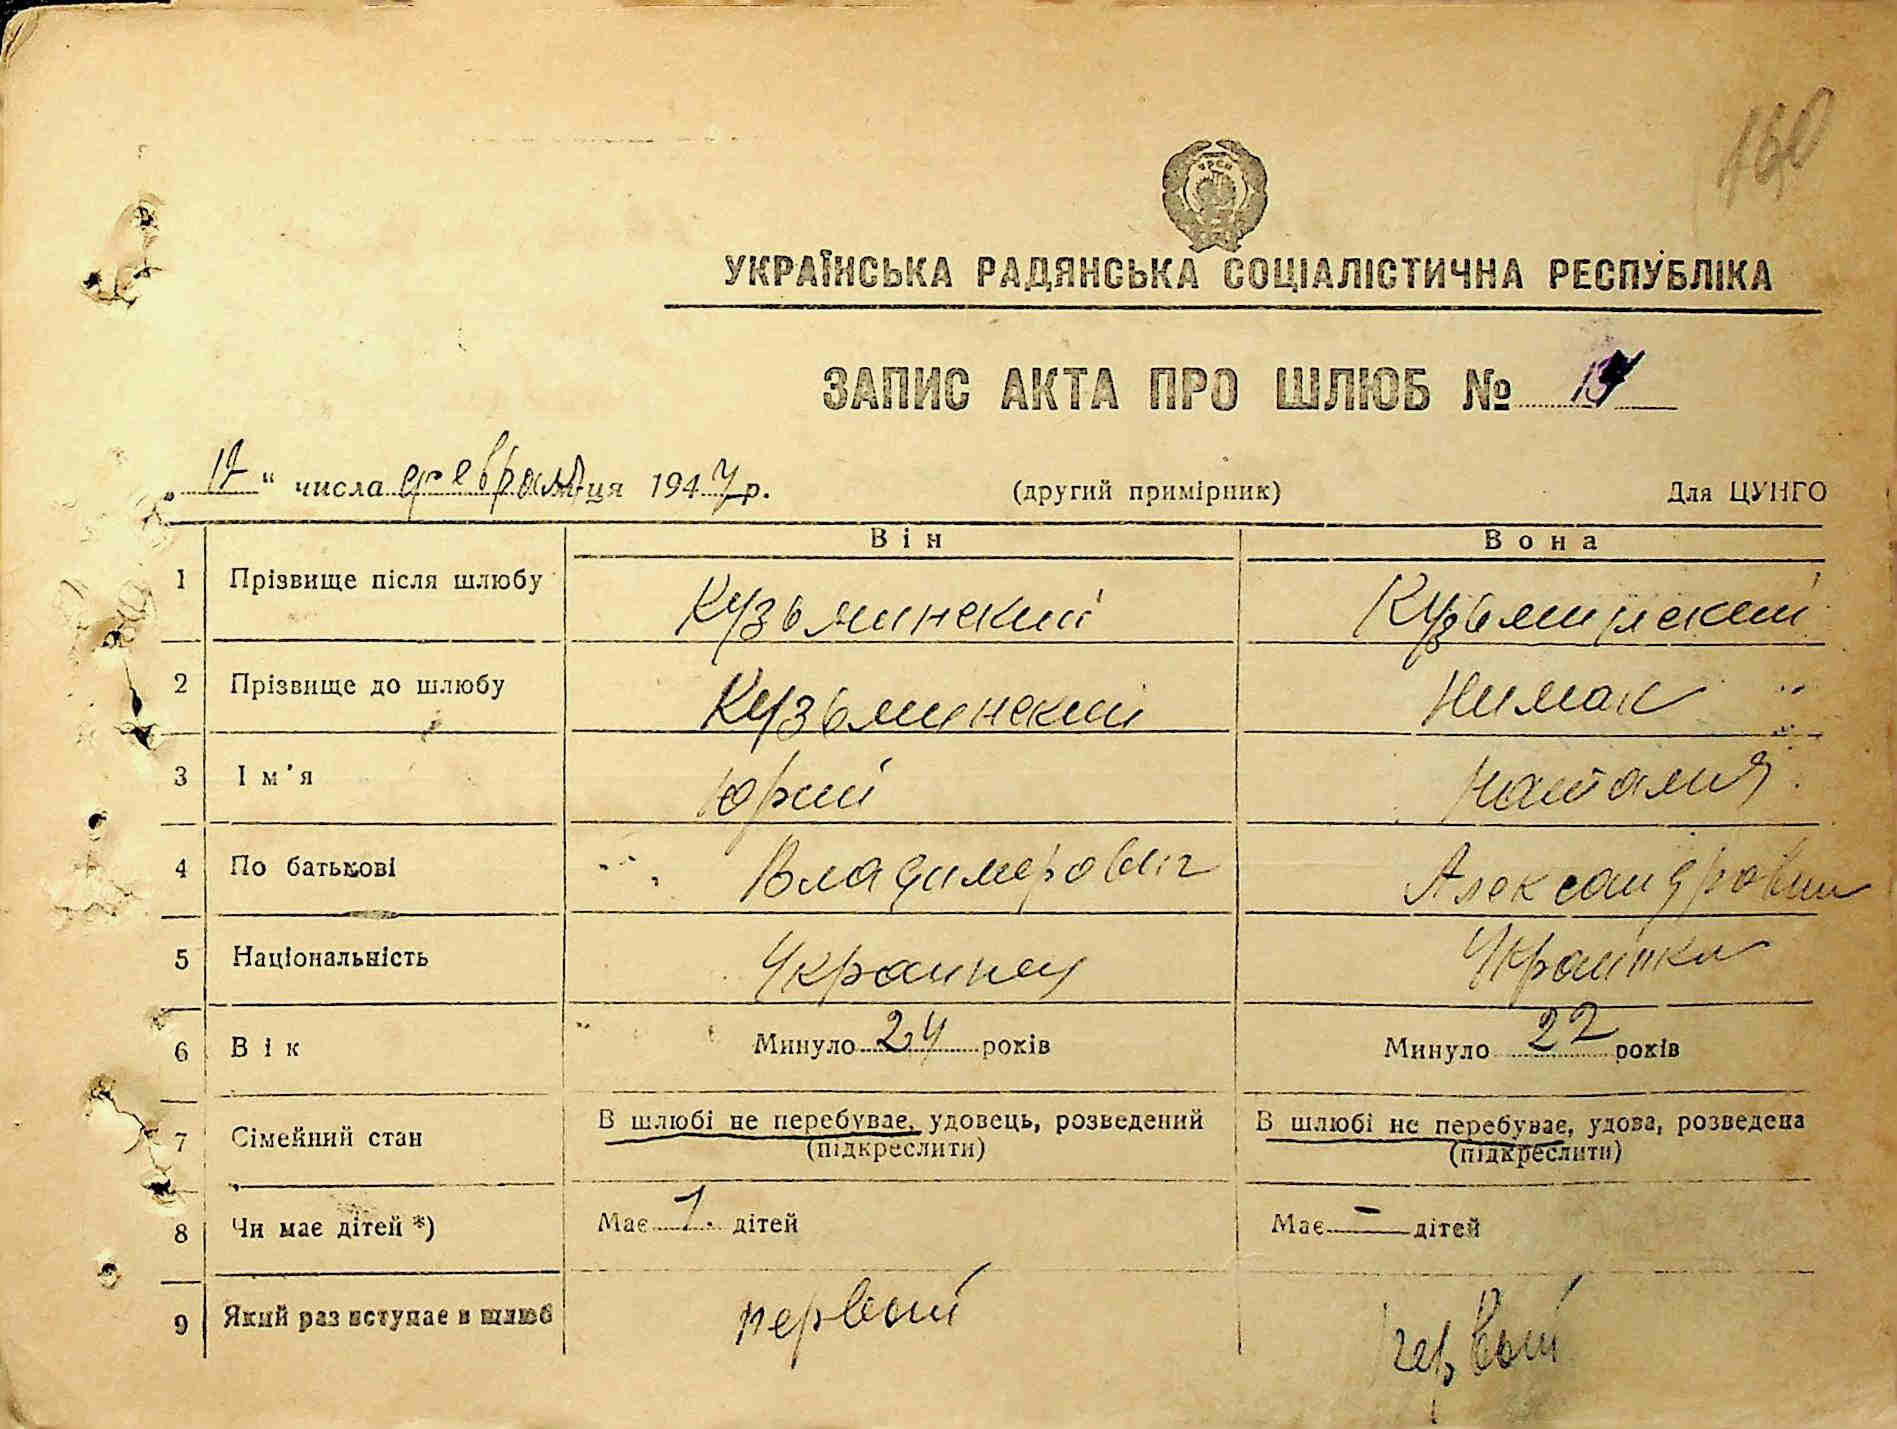 160
УРСР
УКРАЇНСЬКА РАДЯНСЬКА СОЦІАЛІСТИЧНА РЕСПУБЛІКА
ЗАПИС АКТА ПРО ШЛЮБ №
„ 17 “ числа февраля місяця 1947 р. (другий примірник) Для ЦУНГО
Він Вона
1 Прізвище після шлюбу Кузьминский Кузьминский
2 Прізвище до шлюбу Кузьминский Нимак
3 Ім'я Юрий Наталия
4 По батькові Владимирович Александровна
5 Національність Украинец Украинка
6 Вік Минуло 24 років Минуло 22 років
7 Сімейний стан В шлюбі не перебуває, удовець, розведений В шлюбі не перебуває, удова, розведена
(підкреслити) (підкреслити)
8 Чи має дітей *) Має 1. дітей Має - дітей
9 Який раз вступає в шлюб первый первый